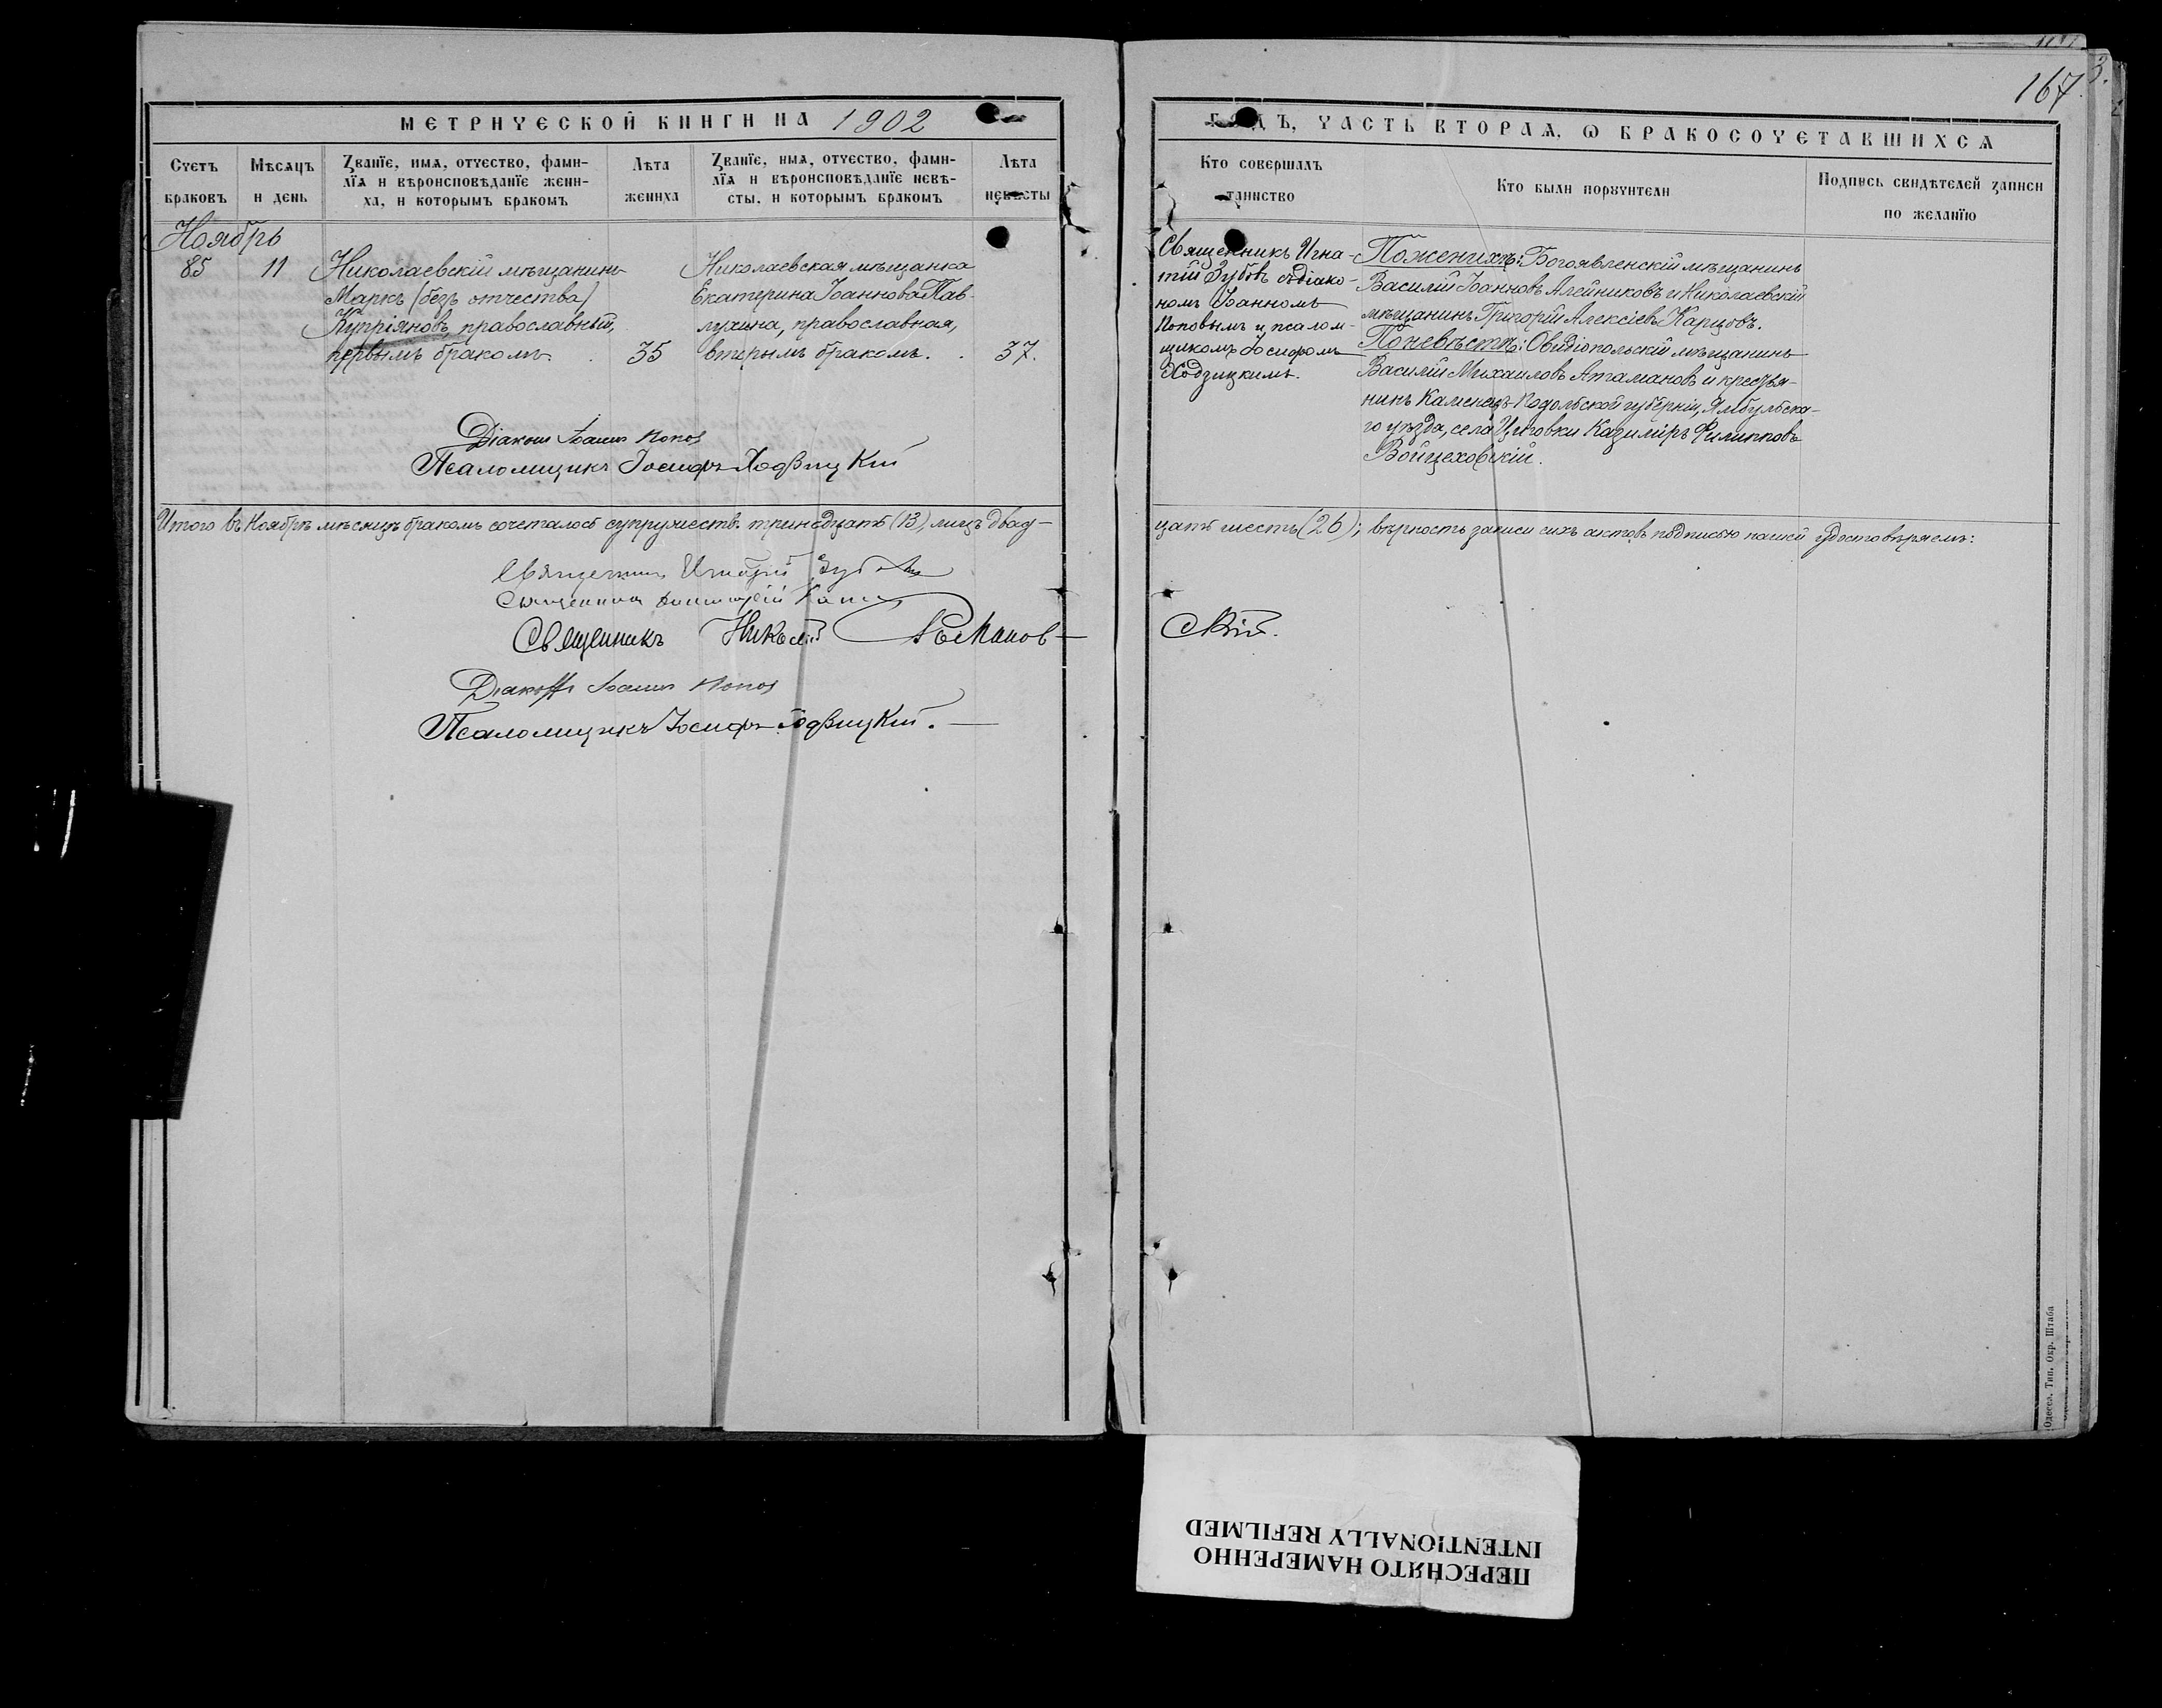 167
3.
МЕТРИЧЕСКОЙ КНИГИ НА 1902
ГОДЪ, ЧАСТЬ ВТОРАЯ, Ѡ БРАКОСОЧЕТАВШИХСЯ
Счетъ браковъ
Мѣсяцъ и день
Званїе, имя, отчество, фами-
лїя и вѣроисповѣданїе жени-
ха, и которымъ бракомъ
Лѣта жениха
Званїе, имя, отчество, фами-
лїя и вѣроисповѣданїе невѣ-
сты, и которымъ бракомъ
Лѣта невѣсты
Кто совершалъ таинство
Кто были порꙋчители
Подпись свидѣтелей записи по желанїю
Ноябрь
85
11
Николаевскій мѣщанинъ
Маркъ (безъ отчества)
Купріяновъ, православный,
первымъ бракомъ.
35
Николаевская мѣщанка
Екатерина Іоаннова Пав-
лухина, православная,
вторымъ бракомъ.
37.
Священникъ Игна-
тій Зубовъ съ діако-
номъ Іоанномъ
Поповымъ и псалом-
щикомъ Іосифомъ
Ходзицкимъ.
По женихѣ: Богоявленскій мѣщанинъ
Василій Іоанновъ Алейниковъ и Николаевскій
мѣщанинъ Григорій Алексіевъ Карцовъ.
По невѣстѣ: Овидіопольскій мѣщанинъ
Василій Михаиловъ Атамановъ и крестья-
нинъ Каменецъ-Подольской губерніи, Ямбульска-
го уѣзда, села Цыговки Казиміръ Филипповъ
Войцеховскій.
Діаконъ Іоаннъ Попов
Псаломщикъ Іосифъ Ходзицкій
Итого въ Ноябрѣ мѣсяцѣ бракомъ сочеталось супружествъ тринадцать (13), лицъ двад-
цать шесть (26); вѣрность записи сихъ актовъ подписью нашей удостовѣряемъ:
Священникъ Игнатій Зубовъ
Священникъ
Священникъ Николай Романов-
скій.
Діаконъ Іоаннъ Попов
Псаломщикъ Іосифъ Ходзицкій.
Одесса. Тип. Окр. Штаба
ПЕРЕСНЯТО НАМЕРЕННО
INTENTIONALLY REFILMED